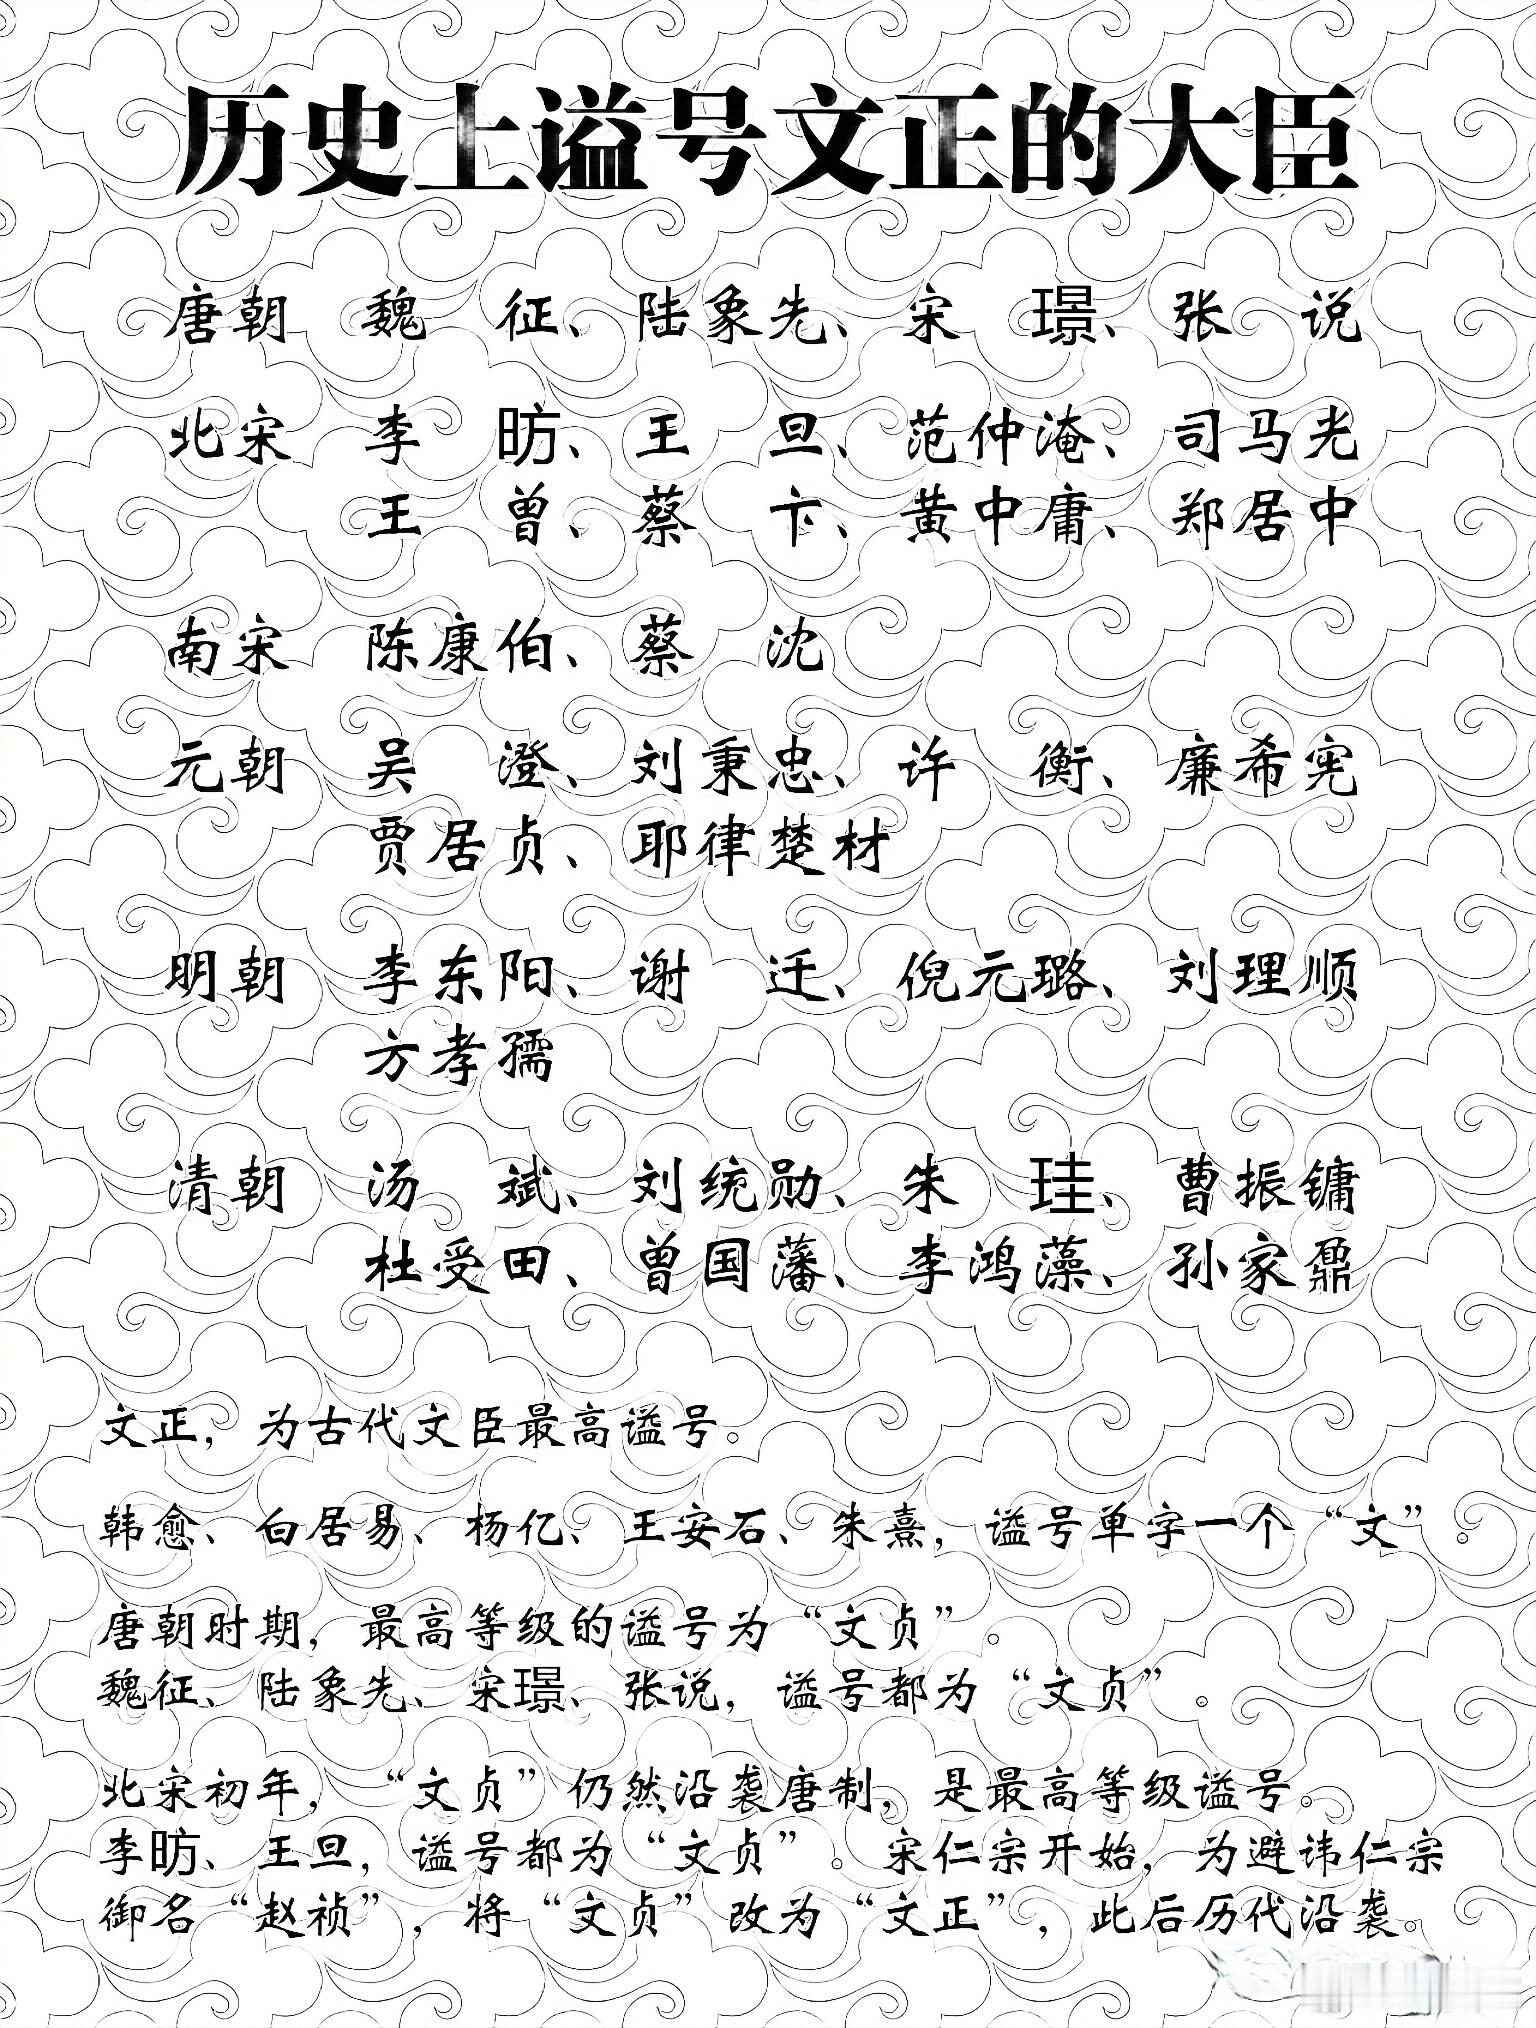 历史上谥号文正的大臣
唐朝 魏 征、陆象先、宋 璟、张 说
北宋 李 昉、王 旦、范仲淹、司马光
王 曾、蔡 卞、黄中庸、郑居中
南宋 陈康伯、蔡 沈
元朝 吴 澄、刘秉忠、许 衡、廉希宪
贾居贞、耶律楚材
明朝 李东阳、谢 迁、倪元璐、刘理顺
方孝孺
清朝 汤 斌、刘统勋、朱 珪、曹振镛
杜受田、曾国藩、李鸿藻、孙家鼐
文正，为古代文臣最高谥号。
韩愈、白居易、杨亿、王安石、朱熹，谥号单字一个“文”。
唐朝时期，最高等级的谥号为“文贞”。
魏征、陆象先、宋璟、张说，谥号都为“文贞”。
北宋初年，“文贞”仍然沿袭唐制，是最高等级谥号。
李昉、王旦，谥号都为“文贞”。宋仁宗开始，为避讳仁宗
御名“赵祯”，将“文贞”改为“文正”，此后历代沿袭。